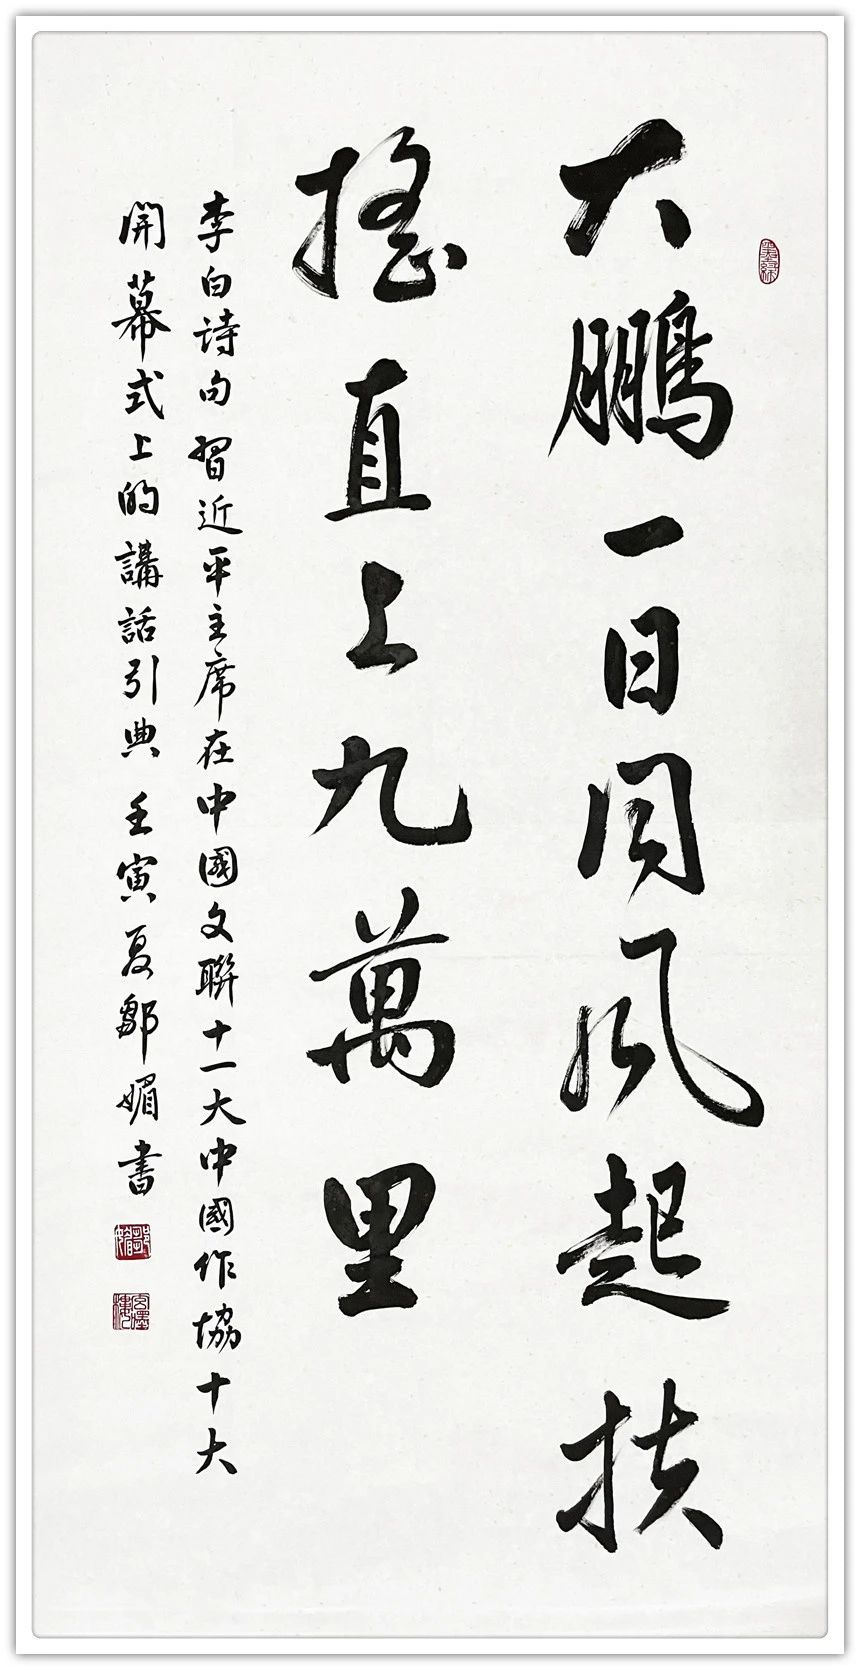 大鹏一日同風起扶
搖直上九萬里
李白詩句習近平主席在中國文聯十一大中國作協十大
開幕式上的講話引典壬寅夏鄒媚書
鄒媚